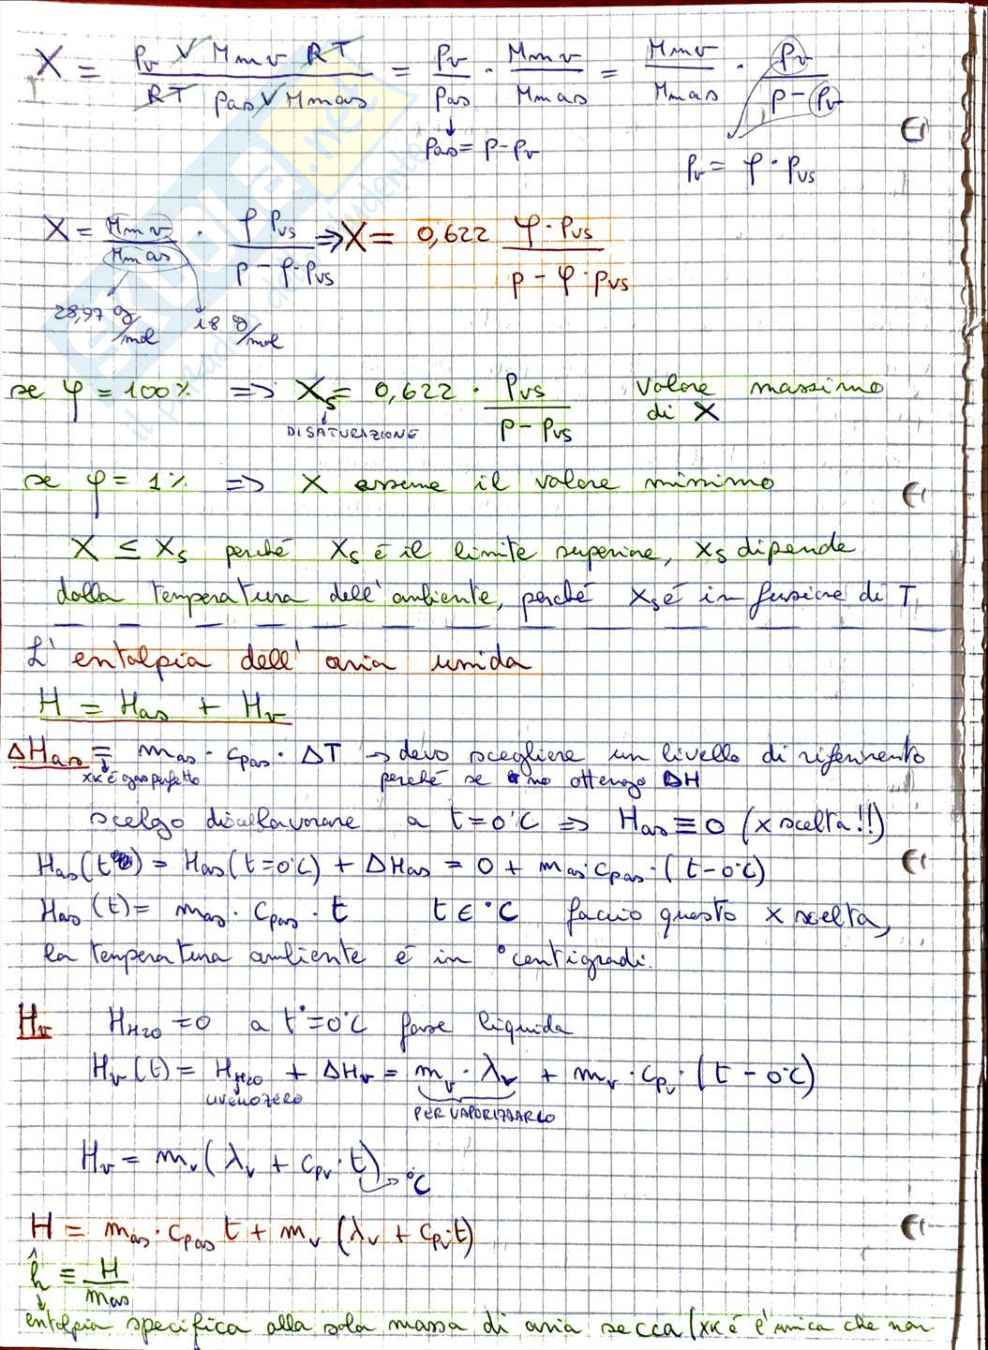 X = pv V Mmv RT / RT pas V Mmas = pv / pas · Mmv / Mmas = Mmv / Mmas · pv / p - pv
pas = p - pv
pv = φ · pvs
X = Mmv / Mmas · φ pvs / p - φ · pvs ⇒ X = 0,622 φ · pvs / p - φ · pvs
28,97 g/mol 18 g/mol
se φ = 100% => Xs = 0,622 · pvs / p - pvs valore massimo di X
DI SATURAZIONE
se φ = 1% => X assume il valore minimo
X ≤ Xs perché Xs é il limite superiore, Xs dipende
dalla temperatura dell'ambiente, perché Xs é in funzione di T
L'entalpia dell'aria umida
H = Has + Hv
ΔHas = mas · cpas · ΔT → devo scegliere un livello di riferimento
xk é gas perfetto perché se no ottengo ΔH
scelgo di lavorare a t=0°C => Has ≡ 0 (x scelta!!)
Has(t) = Has(t=0°C) + ΔHas = 0 + mas · cpas · (t - 0°C)
Has(t) = mas · cpas · t t ∈ °C faccio questo x scelta,
la temperatura ambiente é in °centigradi.
Hv HH2O = 0 a t°=0°C fase liquida
Hv(t) = HH2O + ΔHv = mv · λv + mv · cpv · (t - 0°C)
LIVELLO ZERO PER VAPORIZZARLO
Hv = mv(λv + cpv · t) °C
H = mas · cpas t + mv (λv + cpv·t)
ĥ ≡ H / mas
entalpia specifica alla sola massa di aria secca (xk é l'unica che non